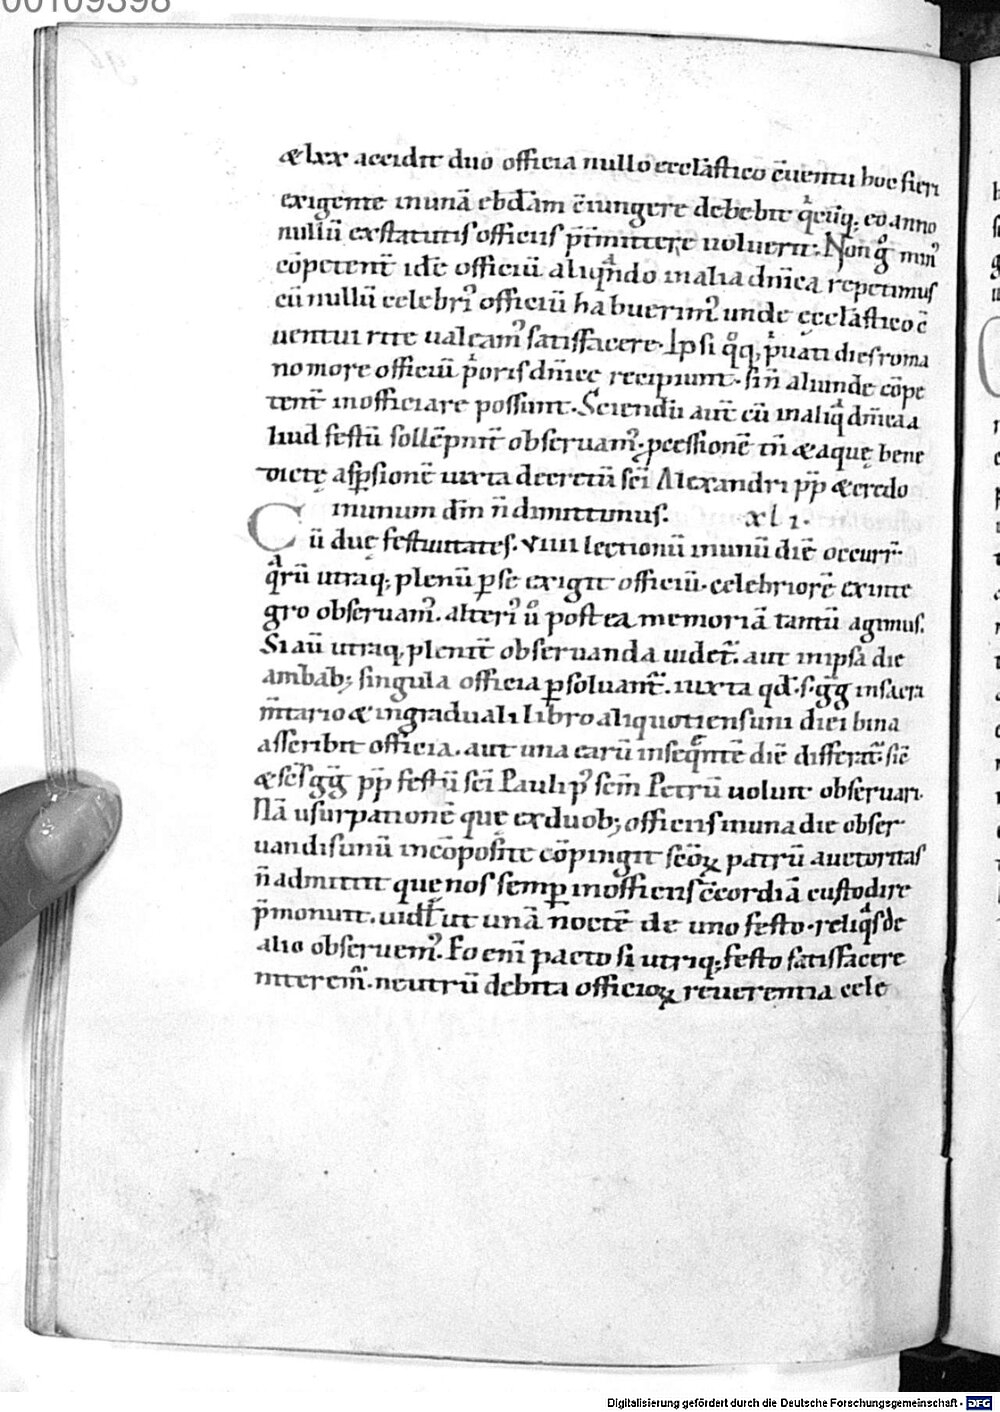 00109398
&lxx accidit duo officia nullo eccl̄astico c̄uentu hoc fieri
exigente in unā ebdām c̄iungere debebit q̄cūq; eo anno
nullū ex statutis officiis p̄t̄mittere uoluerit. Non g̊ min᾽
cōpetent̄ idē officiū aliqͣndo in alia dn̄ica repetimus
cū nullū celebri᾽ officiū habuerim᾽ unde ęccl̄astico c̄
uentui rite ualeam᾽ satisfacere. Ipsi q̊q, p̄uati dies roma
no more officiū p̄oris dn̄icę recipiunt. sin̄ aliunde cōpe
tent̄ inofficiare possunt. Sciendū aut̄ cū in aliqͣ dn̄ica a
liud festū sollēpnit̄ obseruam᾽. p̄cessionē tn̄ & aquę bene
dictę asp̄sionē iuxta decretū sc̄i Alexandri pp̄ & credo
in unum dm̄ n̄ dimittimus. xli.
Cū duę festiuitates. viiii lectionū in unū diē occurr̄.
qͣrū utraq; plenū p̄ se exigit officiū. celebriorē ex inte
gro obseruam᾽. alteri᾽ ů postea memoriā tantū agimus.
Si aū utraq, plenit̄ obseruanda uidet᾽. aut in ipsa die
ambab; singula officia p̄soluant᾽. iuxta qd̄. s. gḡ in sacra
m̄tario & in graduali libro aliquotiens uni diei bina
asscribit officia. aut una earū in seqn̄tē diē differat᾽. sic̄
& sc̄s gḡ pp̄ festū sc̄i Pauli p᾽ sc̄m Petrū uoluit obseruari.
Nā usurpationē quę ex duob; officiis in una die obser
uandis unū incōposite cōpingit sc̄oꝝ patrū auctoritas
n̄ admittit quę nos semp̄ in officiis c̄cordiā custodire
p̄monuit. uidl̄ ut unā noctē de uno festo. reliqͣs de
alio obseruem᾽. Eo eni᾽ pacto si utriq; festo satisfacere
niterem᾽. neutrū debita officioꝝ reuerentia cele
Digitalisierung gefördert durch die Deutsche Forschungsgemeinschaft - DFG